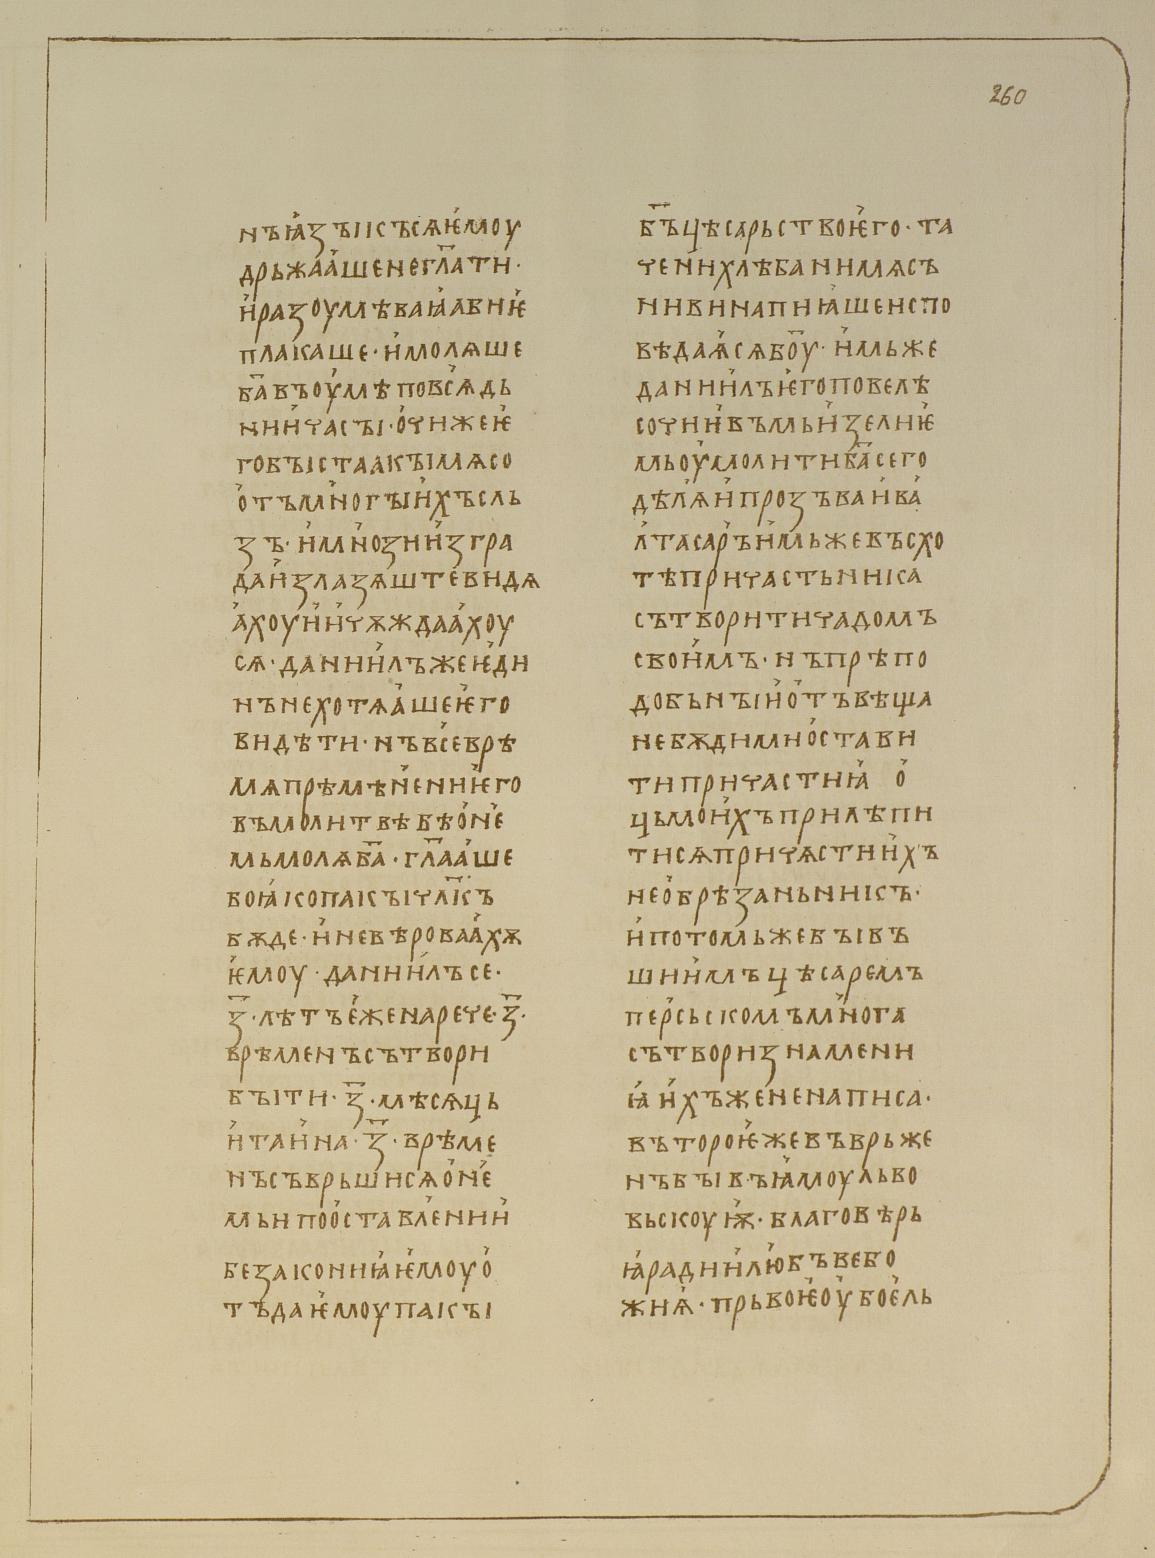 260
нъꙗ҅зъікъсѧѥ҅моу
дрьжаа҅шенегл҃ати·
и҅разоумѣваꙗ҅авиѥ҅
плакаше·и҅молѧше
ба҃въоу҅мѣповьсѧдь
нии҅часъі·о҅чижеѥ҅
гобъістаакъімѧсо
о҅тъмъногъіи҅хъсль
зъ·и҅мнозии҅згра
даи҅злазѧштевидѧ
а҅хоуи҅и҅чѫждаа҅хоу
сѧ·дании҅лъжеѥ҅ди
нънехотѧа҅шеѥ҅го
видѣти·нъвсеврѣ
мѧпрѣмѣнениѥ҅го
въмолитвѣбѣо҅не҅
мьмолѧба҃·гл҃аа҅ше
боꙗ҅копакъічл҃къ
бѫде·и҅невѣроваа҅хѫ
ѥ҅моу·дании҅лъсе·
з҃·лѣтъе҅женарече·з҃·
врѣменъсътвори
бъіти·з҃·мѣсѧць
и҅таи҅на·з҃·врѣме
нъсъврьшисѧо҅не҅
мьипоо҅ставлении҅
безакониꙗ҅ѥ҅моуо҅
тъдаѥ҅моупакъі
б҃ъцѣсарьствоѥ҅го·та
чени҅хлѣбанимѧсъ
нивинапиꙗ҅шеиспо
вѣдаѩ҅сѧбо҃у·и҅мьже
дании҅лъѥ҅гоповелѣ
сочии҅въмьи҅зелиѥ҅
мьоу҅молитиба҃сего
дѣлѩ҅и҅прозъваи҅ва҅
лтасаръи҅мьжевъсхо
тѣпричастьника
сътворитичадомъ
свои҅мъ·нъпрѣпо
добьнъіи҅о҅тъвѣща
небѫдимио҅стави
типричастиꙗ҅ о҅
цьмои҅хъприлѣпи
тисѧпричѧстии҅хъ
нео҅брѣзаньникъ·
и҅потомьжебъівъ
шии҅мъцѣсаремъ
персьскомъмънога
сътворизнамени
ꙗ҅и҅хъжененаписа·
вътороѥ҅жевъврьже
нъбъівъꙗ҅моульво
вьскоуѭ҅·благовѣрь
ꙗ҅радии҅лю҅бъвебо
жиѩ҅·прьвоѥ҅оу҅бое҅ль